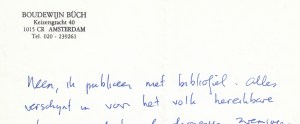 BOUDEWIJN BÜCH
Keizersgracht 40
1015 CR AMSTERDAM
Tel. 020 - 239261
Neen, ik publiceer niet bibliofiel. Alles
verschijnt in voor het volk bereikbare